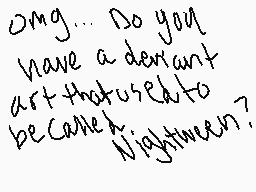 omg... Do you
have a deviant
art that used to
be called
Nightween?